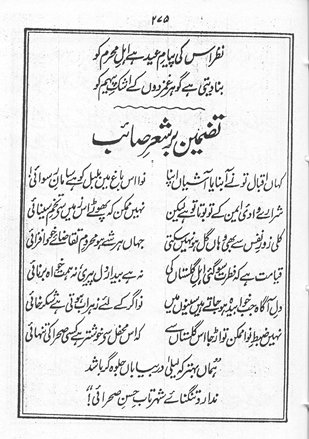 ۲۷۵
نظر اس کی پیامِ عید ہے اہلِ محرم کو
بنا دیتی ہے گوہر غمزدوں کے اشکِ پیہم کو
تضمین بر شعرِ صائب
کہاں اقبال تو نے آ بنایا آشیاں اپنا نوا اس باغ میں بلبل کو ہے سامانِ رسوائی!
شرارے وادیِ ایمن کے تو بوتا تو ہے لیکن نہیں ممکن کہ پھوٹے اس زمیں سے تخمِ سینائی
کلی زورِ نفس سے بھی وہاں گل ہو نہیں سکتی جہاں ہر شے ہو محرومِ تقاضائے خود افزائی
قیامت ہے کہ فطرت سو گئی اہلِ گلستاں کی نہ ہے بیدار دل پیری، نہ ہمت خواہ برنائی
دلِ آگاہ جب خوابیدہ ہو جاتے ہیں سینوں میں نواگر کے لئے زہراب ہوتی ہے شکر خائی
نہیں ضبطِ نوا ممکن تو اڑ جا اس گلستاں سے کہ اس محفل سے خوشتر ہے کسی صحرا کی تنہائی
”ہماں بہتر کہ لیلیٰ در بیاباں جلوہ گر باشد
ندارد تنگنائے شہر تابِ حسنِ صحرائی!“